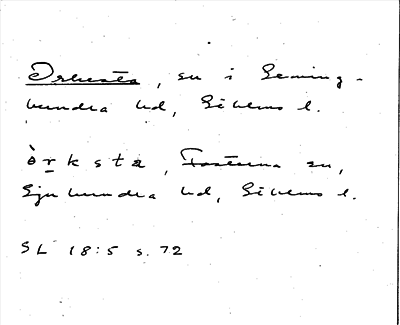 Orkesta, sn i Seming-
hundra hd, Sthlms l.
òrksta, Fasterna sn,
Sjuhundra hd, Sthlms l.
SL 18:5 s. 72